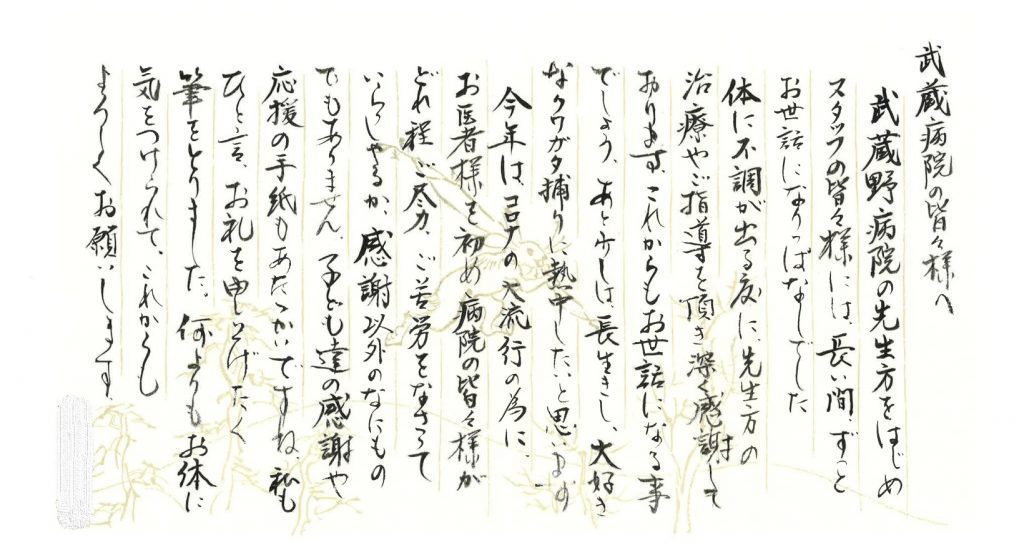 武蔵病院の皆々様へ
武蔵野病院の先生方をはじめ
スタッフの皆々様には、長い間、ずっと
お世話になりっぱなしでした
体に不調が出る度に先生方の
治療やご指導を頂き深く感謝して
おります。これからもお世話になる事
でしょう、あと少しは、長生きし、大好き
なクワガタ捕りに熱中したいと思います
今年は、コロナの大流行の為に、
お医者様を初め病院の皆々様が
どれ程ご尽力、ご苦労をなさって
いらしゃるか、感謝以外のなにもの
でもありません、子ども達の感謝や
応援の手紙もあたゝかいですね、私も
ひと言、お礼を申し上げたく
筆をとりました、何よりもお体に
気をつけられて、これからも
よろしくお願いします